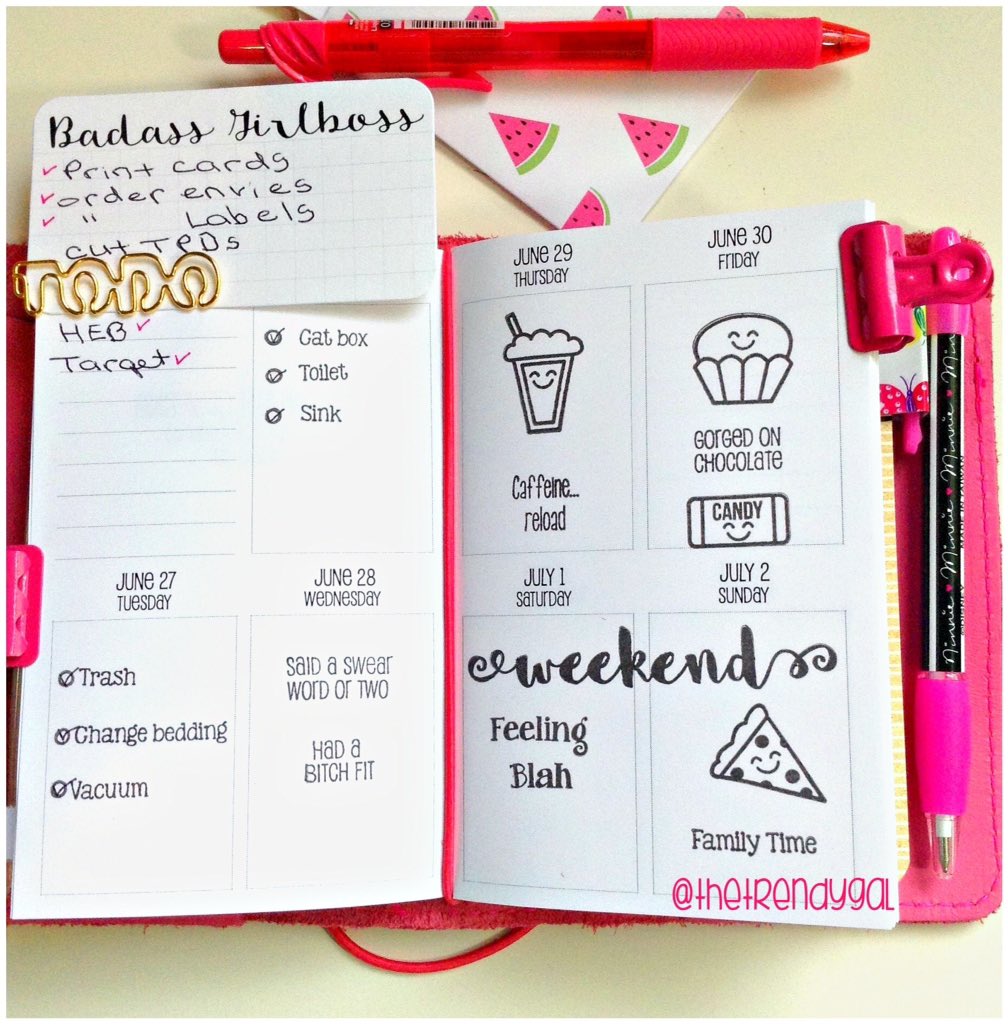 Badass Girlboss
✓ Print cards
✓ order envies
✓ " Labels
cut TPDs
TODO
HEB ✓
Target ✓
Cat box
Toilet
Sink
JUNE 27
TUESDAY
Trash
Change bedding
Vacuum
JUNE 28
WEDNESDAY
SAID A SWEAR
WORD OR TWO
HAD A
BITCH FIT
JUNE 29
THURSDAY
Caffeine...
reload
JUNE 30
FRIDAY
GORGED ON
CHOCOLATE
CANDY
JULY 1
SATURDAY
JULY 2
SUNDAY
weekend
Feeling
Blah
Family Time
@thetrendygal
Minnie ♥ Minnie ♥ Minnie ♥ Mi